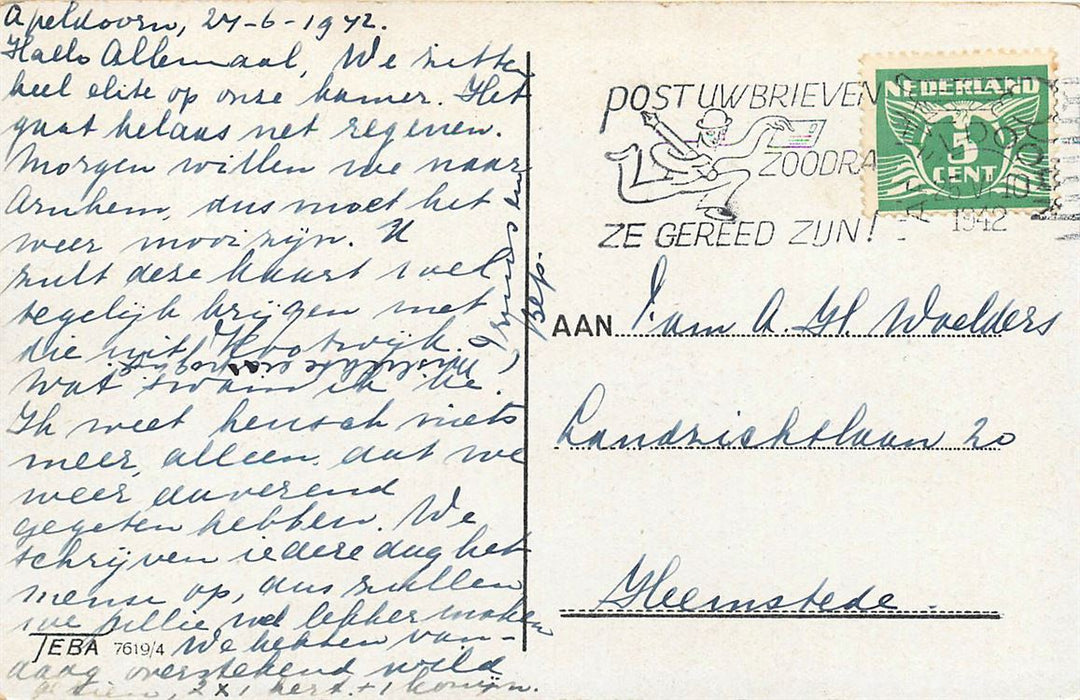 Apeldoorn, 24-6-1942.
Hallo Allemaal, We zitten
heel elite op onze kamer. Het
gaat helaas net regenen.
Morgen willen we naar
Arnhem, dus moet het
weer mooi zijn. U
zult deze kaart wel
tegelijk krijgen met
die uit Kootwijk.
Wat zwam ik he.
Ik weet heusch niets
meer, alleen, dat we
weer daverend
gegeten hebben. We
schrijven iedere dag het
menu op, dus zullen
we jullie wel lekker maken
We hebben van-
daag overstekend wild
gezien, 2x1 hert + 1 konijn.
Bep.
TEBA 7619/4
POST UW BRIEVEN
ZOODRA
ZE GEREED ZIJN!
NEDERLAND
5
CENT
1942
AAN Fam A. H. Woelders
Landzichtlaan 20
Heemstede.